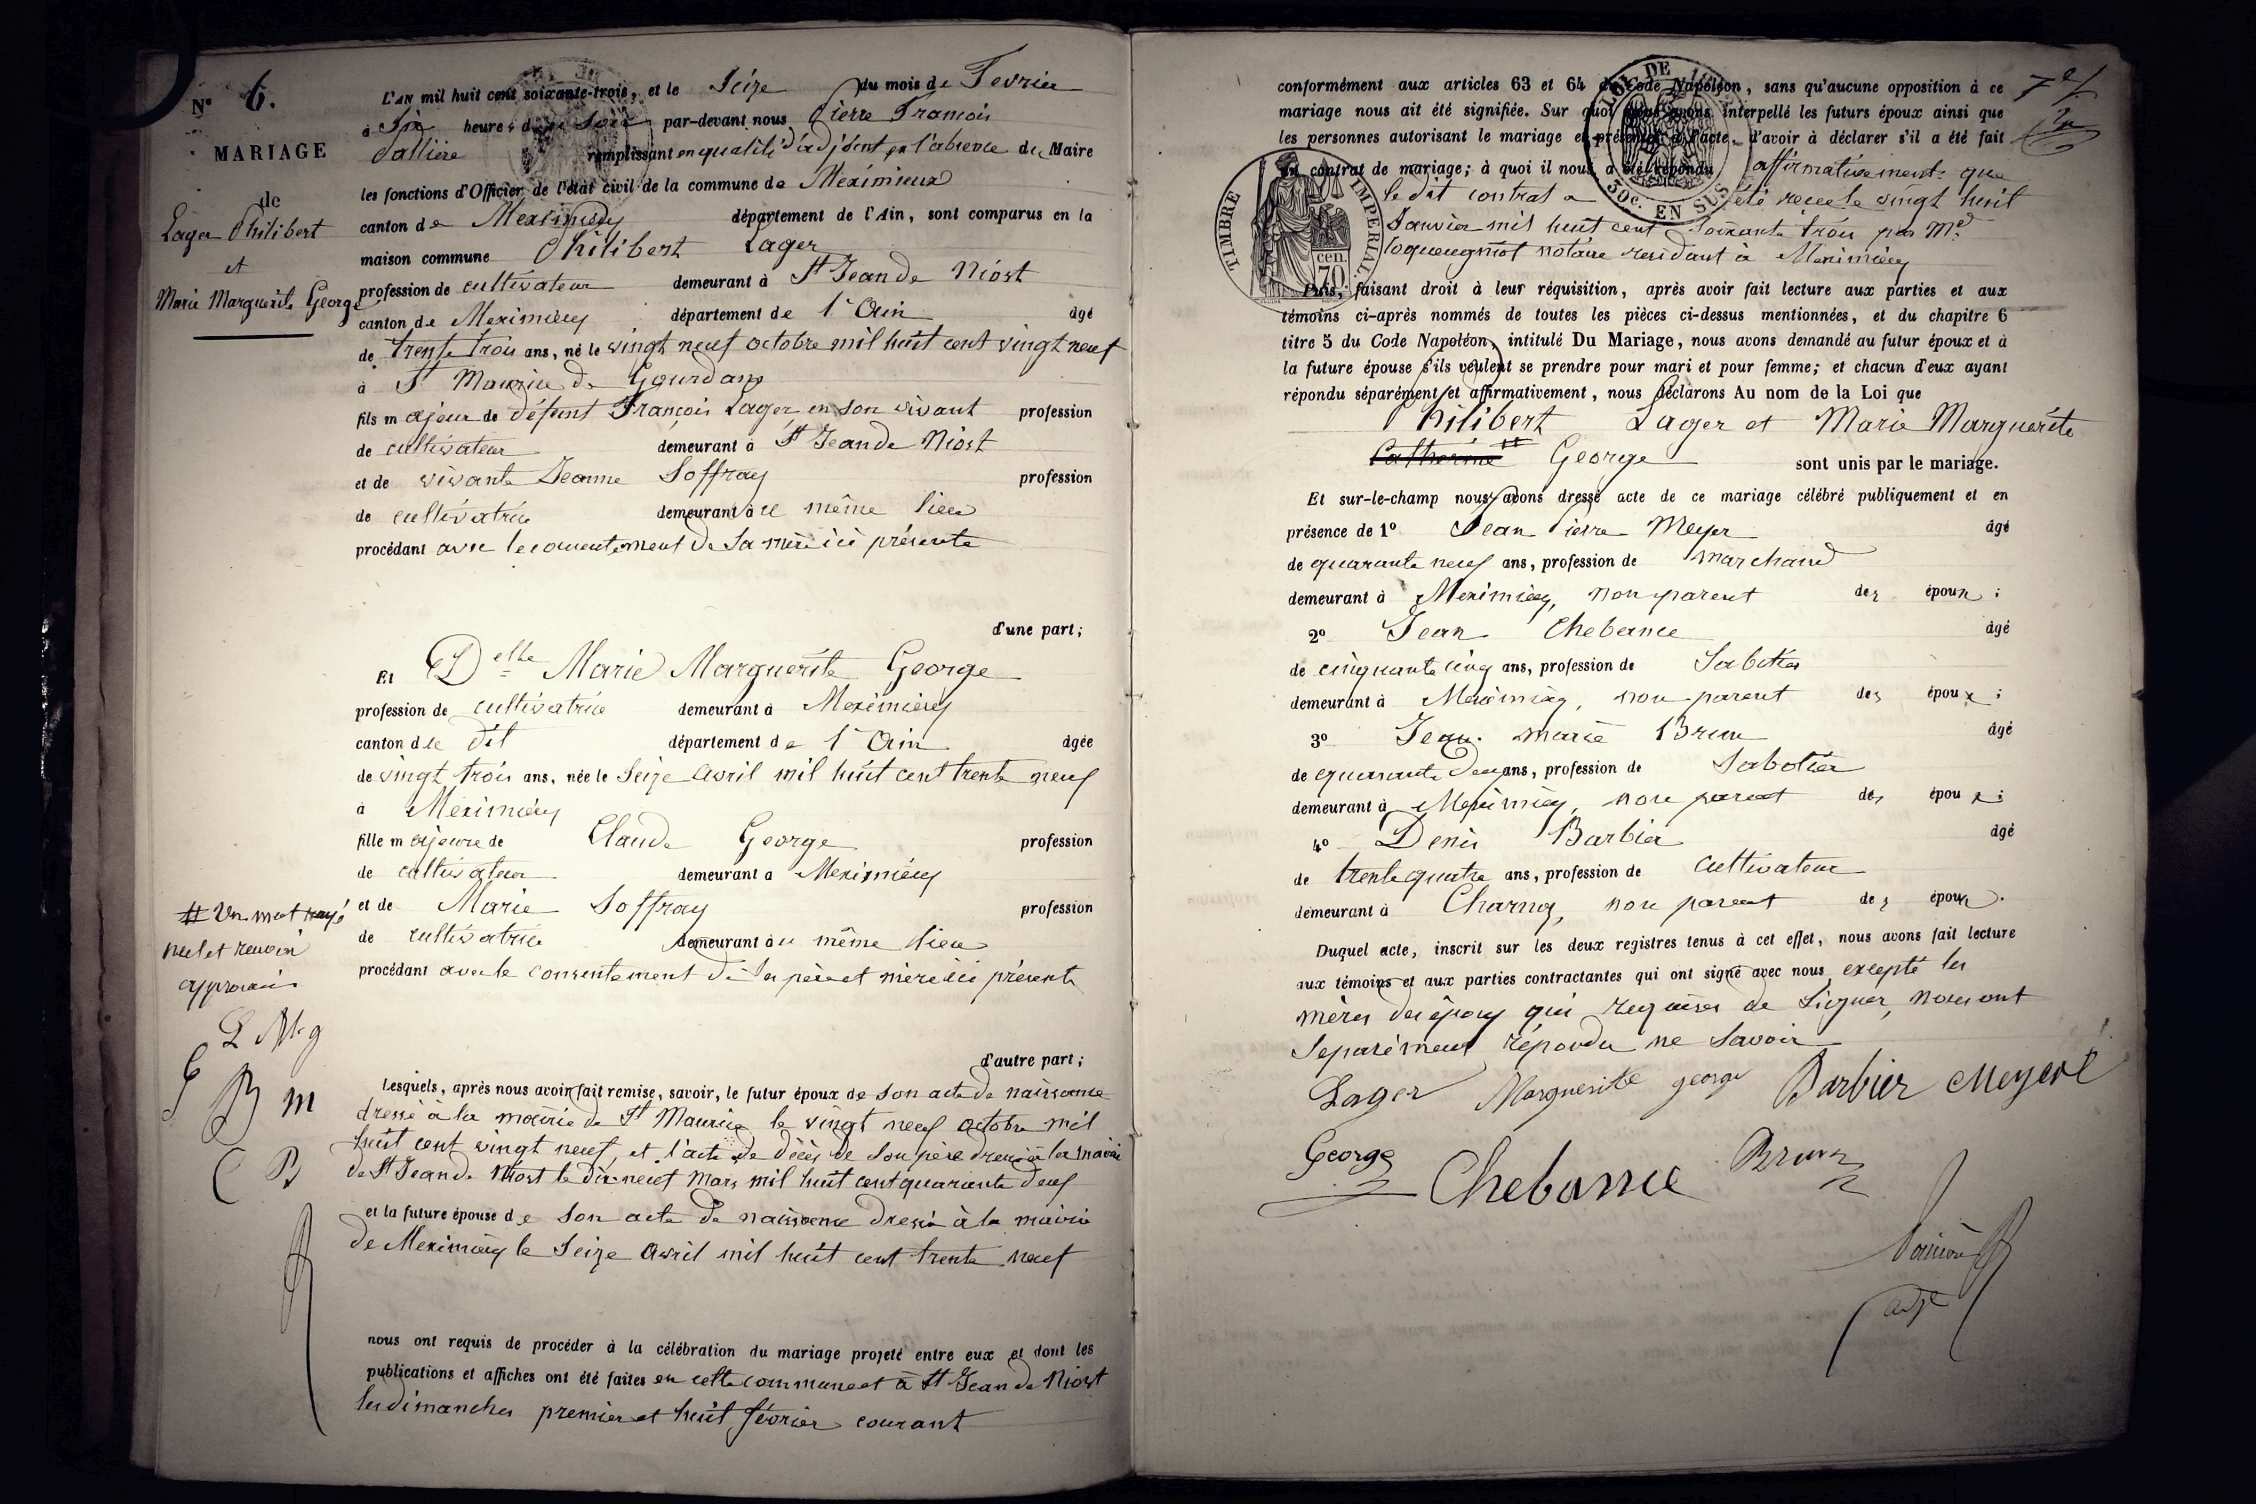 N° 6.
MARIAGE
de
Lager Philibert
et
Marie Marguerite George
L'AN mil huit cent soixante-trois, et le Seize du mois de Fevrier
à Six heures du Soir par-devant nous Pierre François
remplissant en qualité d'adjoint en l'absence du Maire
les fonctions d'Officier de l'état civil de la commune de Meximieux
canton de Meximieux département de l'Ain, sont comparus en la
maison commune Philibert Lager
profession de cultivateur demeurant à St Jean de Niost
canton de Meximieux département de l'Ain âgé
de trente trois ans, né le vingt neuf octobre mil huit cent vingt neuf
à St Maurice de Gourdans
fils majeur de défunt François Lager, en son vivant profession
de cultivateur demeurant à St Jean de Niost
et de vivante Jeanne Soffray profession
de cultivatrice demeurant à ce même lieu
procédant avec le consentement de sa mère ici présente
d'une part;
Et Delle Marie Marguerite George
profession de cultivatrice demeurant à Meximieux
canton de dit département de l'Ain âgée
de vingt trois ans, née le Seize Avril mil huit cent trente neuf
à Meximieux
fille majeure de Claude George profession
de cultivateur demeurant à Meximieux
et de Marie Soffray profession
de cultivatrice demeurant au même lieu
procédant avec le consentement de ses père et mère ici présents
d'autre part;
# Un mot rayé
nul et renvoi
approuvés
L M g
G B m
C B
Lesquels, après nous avoir fait remise, savoir, le futur époux de son acte de naissance
dressé à la mairie de St Maurice le vingt neuf octobre mil
huit cent vingt neuf, et l'acte de décès de son père dressé à la mairie
de St Jean de Niost le dix neuf Mars mil huit cent quarante deux
et la future épouse de son acte de naissance dressé à la mairie
de Meximieux le Seize Avril mil huit cent trente neuf
nous ont requis de procéder à la célébration du mariage projeté entre eux et dont les
publications et affiches ont été faites en cette commune et à St Jean de Niost
les dimanches premier et huit février courant
conformément aux articles 63 et 64 du Code Napoléon, sans qu'aucune opposition à ce
mariage nous ait été signifiée. Sur quoi nous avons interpellé les futurs époux ainsi que
les personnes autorisant le mariage et présentes à l'acte, d'avoir à déclarer s'il a été fait
un contrat de mariage; à quoi il nous a été répondu affirmativement que
le dit contrat a été reçu le vingt huit
Janvier mil huit cent soixante trois par Me
notaire residant à Meximieux
TIMBRE IMPERIAL.
cen.
70
50c. EN SUS
Puis, faisant droit à leur réquisition, après avoir fait lecture aux parties et aux
témoins ci-après nommés de toutes les pièces ci-dessus mentionnées, et du chapitre 6
titre 5 du Code Napoléon, intitulé Du Mariage, nous avons demandé au futur époux et à
la future épouse s'ils veulent se prendre pour mari et pour femme; et chacun d'eux ayant
répondu séparément et affirmativement, nous déclarons Au nom de la Loi que
Philibert Lager et Marie Marguerite
Catherine # George sont unis par le mariage.
Et sur-le-champ nous avons dressé acte de ce mariage célébré publiquement et en
présence de 1° Jean Pierre Meyer âgé
de quarante neuf ans, profession de marchand
demeurant à Meximieux, non parent des époux;
2° Jean Chebance âgé
de cinquante cinq ans, profession de Sabotier
demeurant à Meximieux, non parent des époux;
3° Jean Marie Brun âgé
de quarante deux ans, profession de Sabotier
demeurant à Meximieux, non parent des époux;
4° Denis Barbier âgé
de trente quatre ans, profession de cultivateur
demeurant à Charnoz, non parent des époux.
Duquel acte, inscrit sur les deux registres tenus à cet effet, nous avons fait lecture
aux témoins et aux parties contractantes qui ont signé avec nous excepté les
mères des époux qui requises de signer, nous ont
séparément répondu ne savoir
Lager Marguerite george Barbier Meyer
George Chebance Brun
adjt